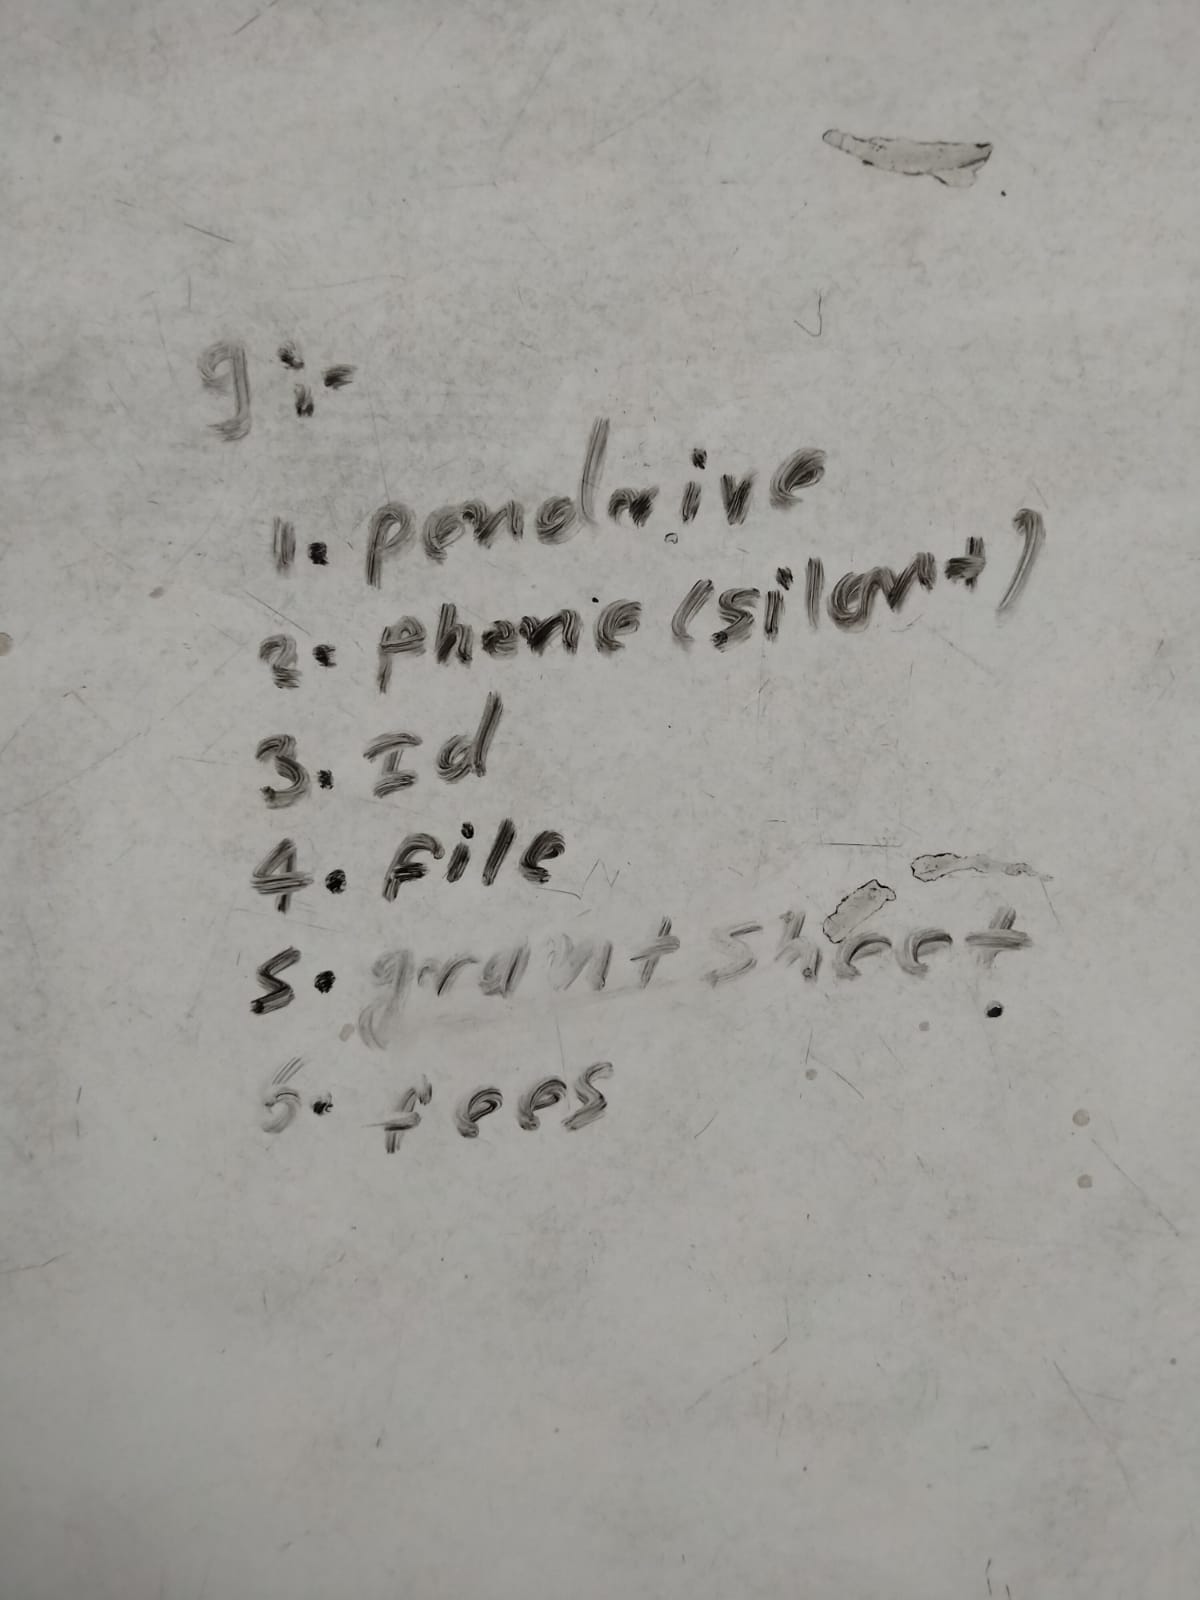 9:-
1. pendrive
2. phone (silent)
3. Id
4. file
5. grant sheet
6. fees